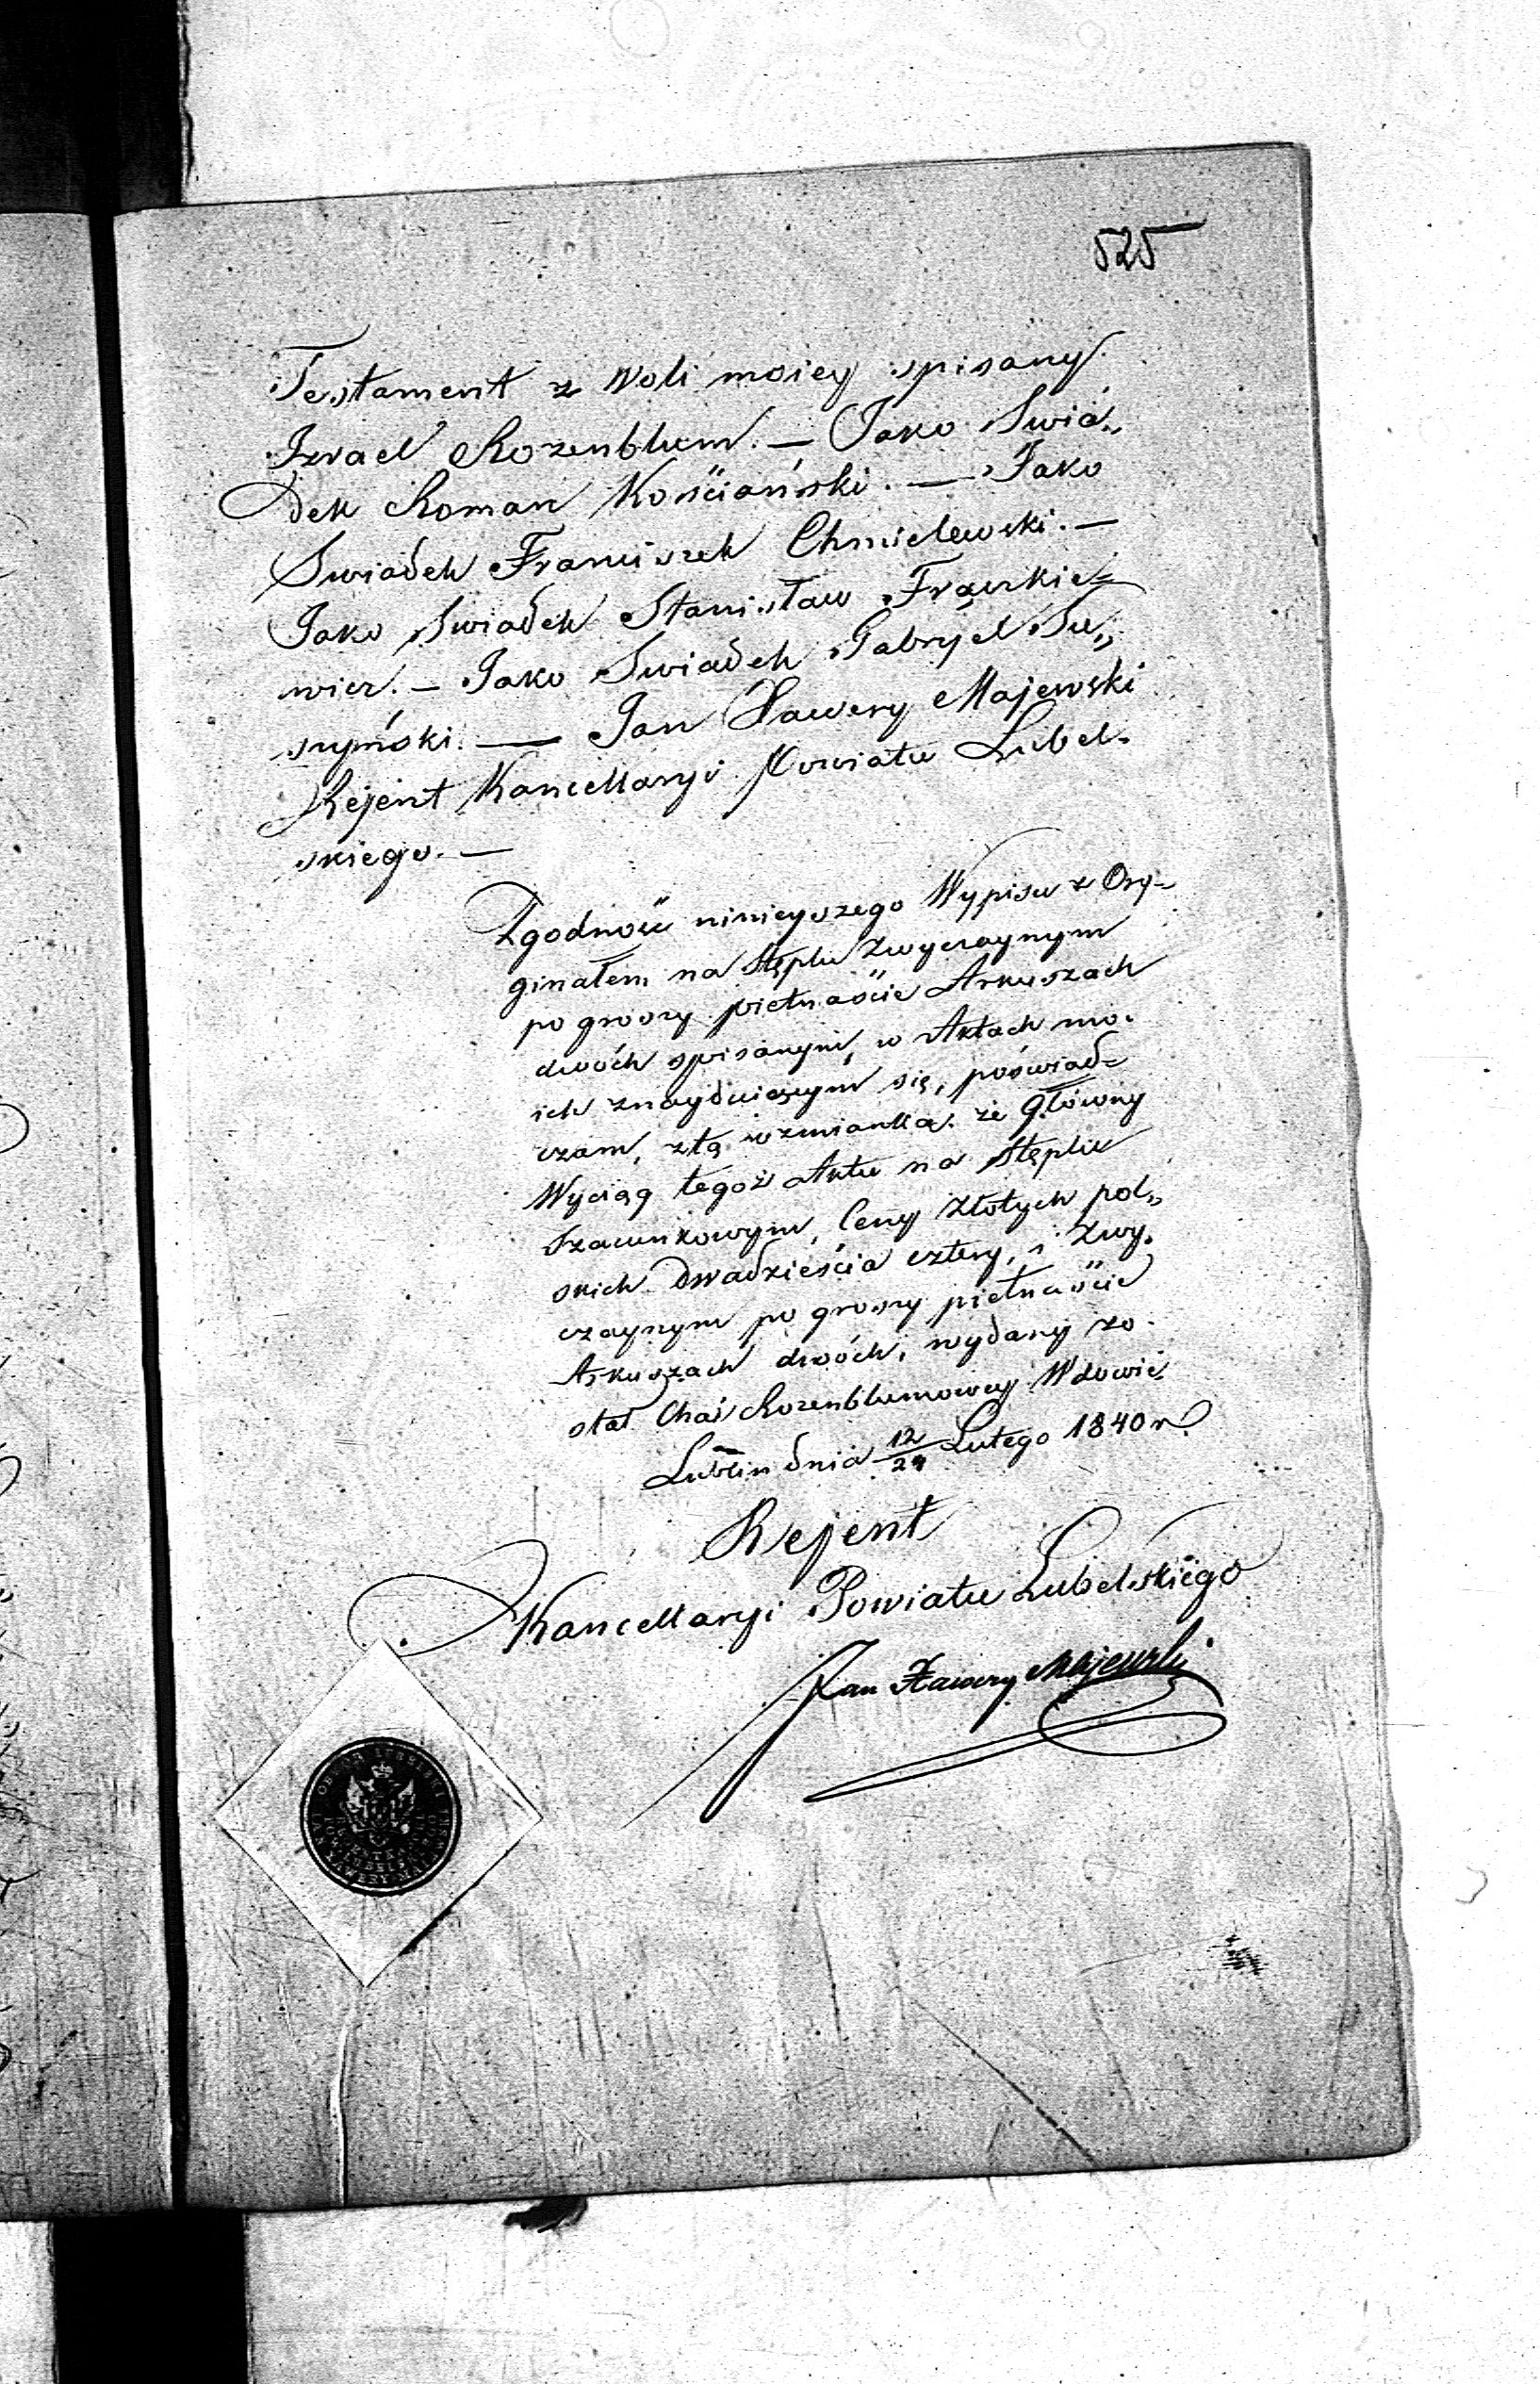 525
Testament z Woli moiey spisany
Izrael Rozenblum. — Jako Swia„
dek Roman Kościański. — Jako
Swiadek Franciszek Chmielewski. —
Jako Swiadek Stanisław Frąckie=
wicz. — Jako Swiadek Gabryel Su„
szyński. — Jan Xawery Majewski
Rejent Kancellaryi Powiatu Lubel-
skiego. —
Zgodność ninieyszego Wypisu z Ory-
ginałem na Stęplu Zwyczaynym
po groszy pietnaście Arkuszach
dwóch spisanym, w Aktach mo-
ich znayduiącym się, poświad=
czam, z tą wzmianką: że główny
Wyciąg tegoż Aktu na Stęplu
Szacunkowym, Ceny Złotych pol„
skich dwadzieścia cztery, i Zwy-
czaynym po groszy pietnaście
Arkuszach dwóch, wydany zo-
stał Chai Rozenblumowey Wdowie.
Lublin dnia 12/24 Lutego 1840 r.
Rejent
Kancellaryi Powiatu Lubelskiego
Jan Xawery Majewski